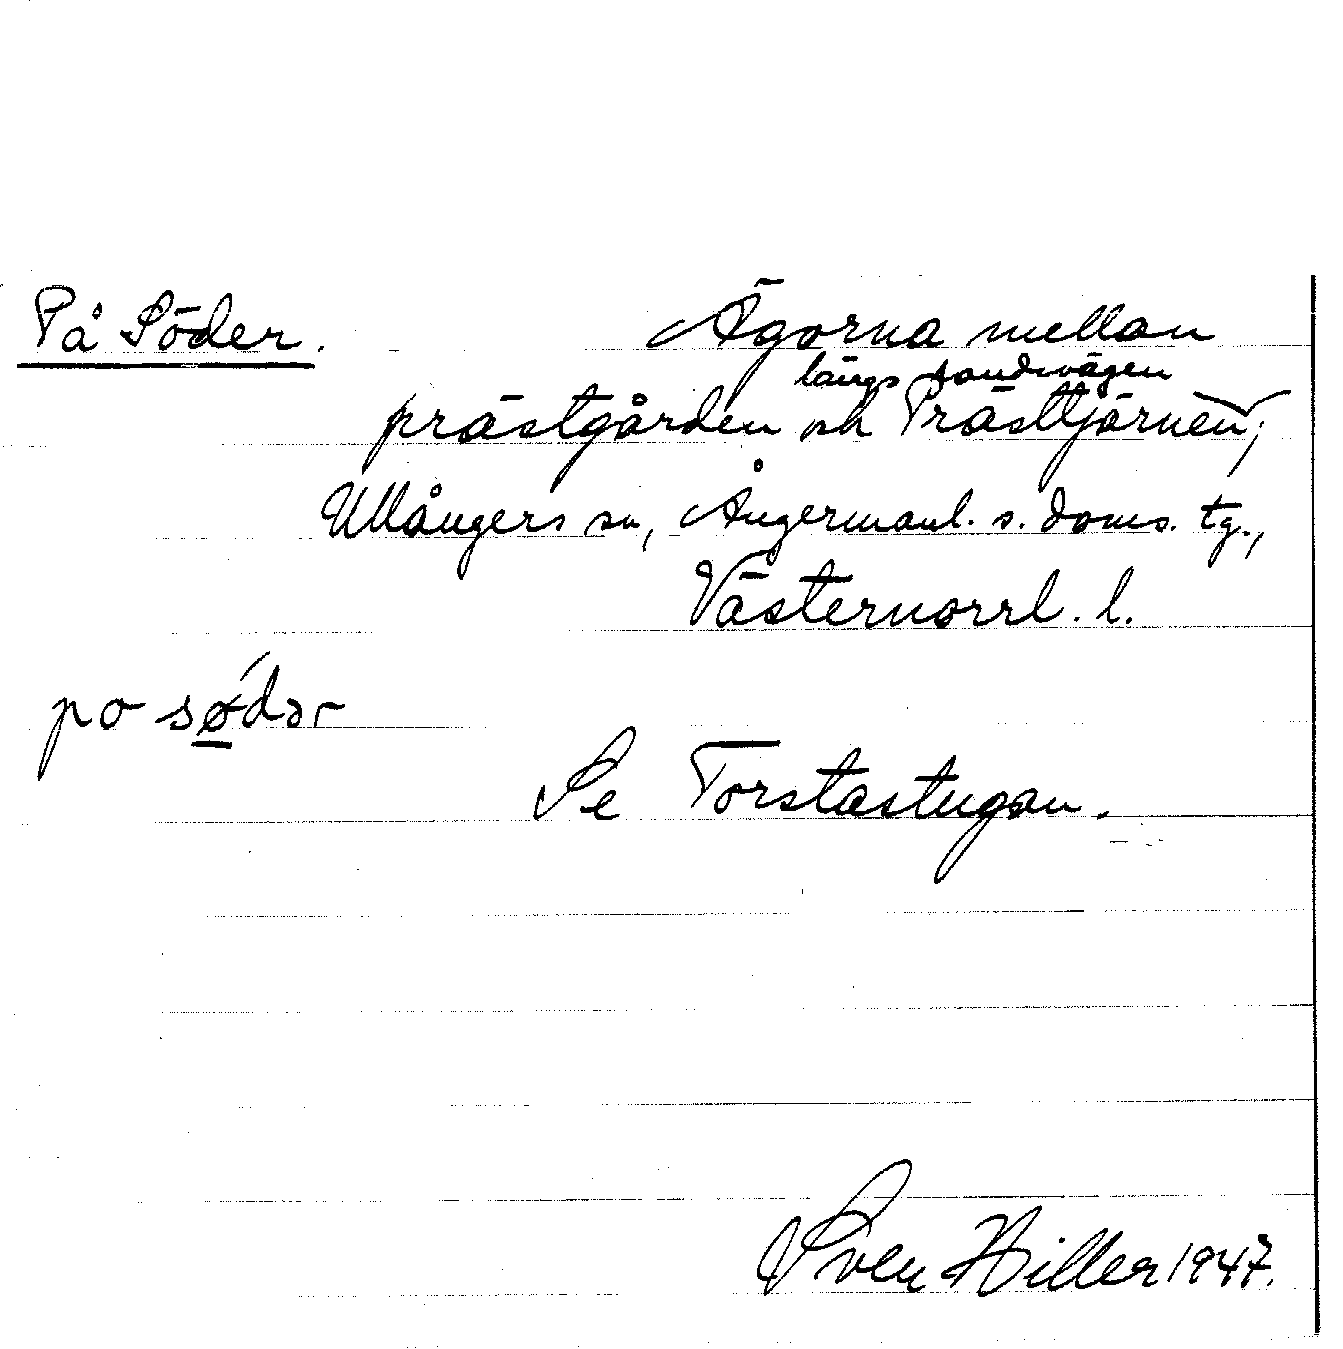 På Söder. Ägorna mellan
längs sandvägen
prästgården och Prästtjärnen,
Ullångers sn, Ångermanl. s. doms. tg.,
Västernorrl. l.
po sǿ̱dər
Se Torstastugan.
Sven Hiller 1947.